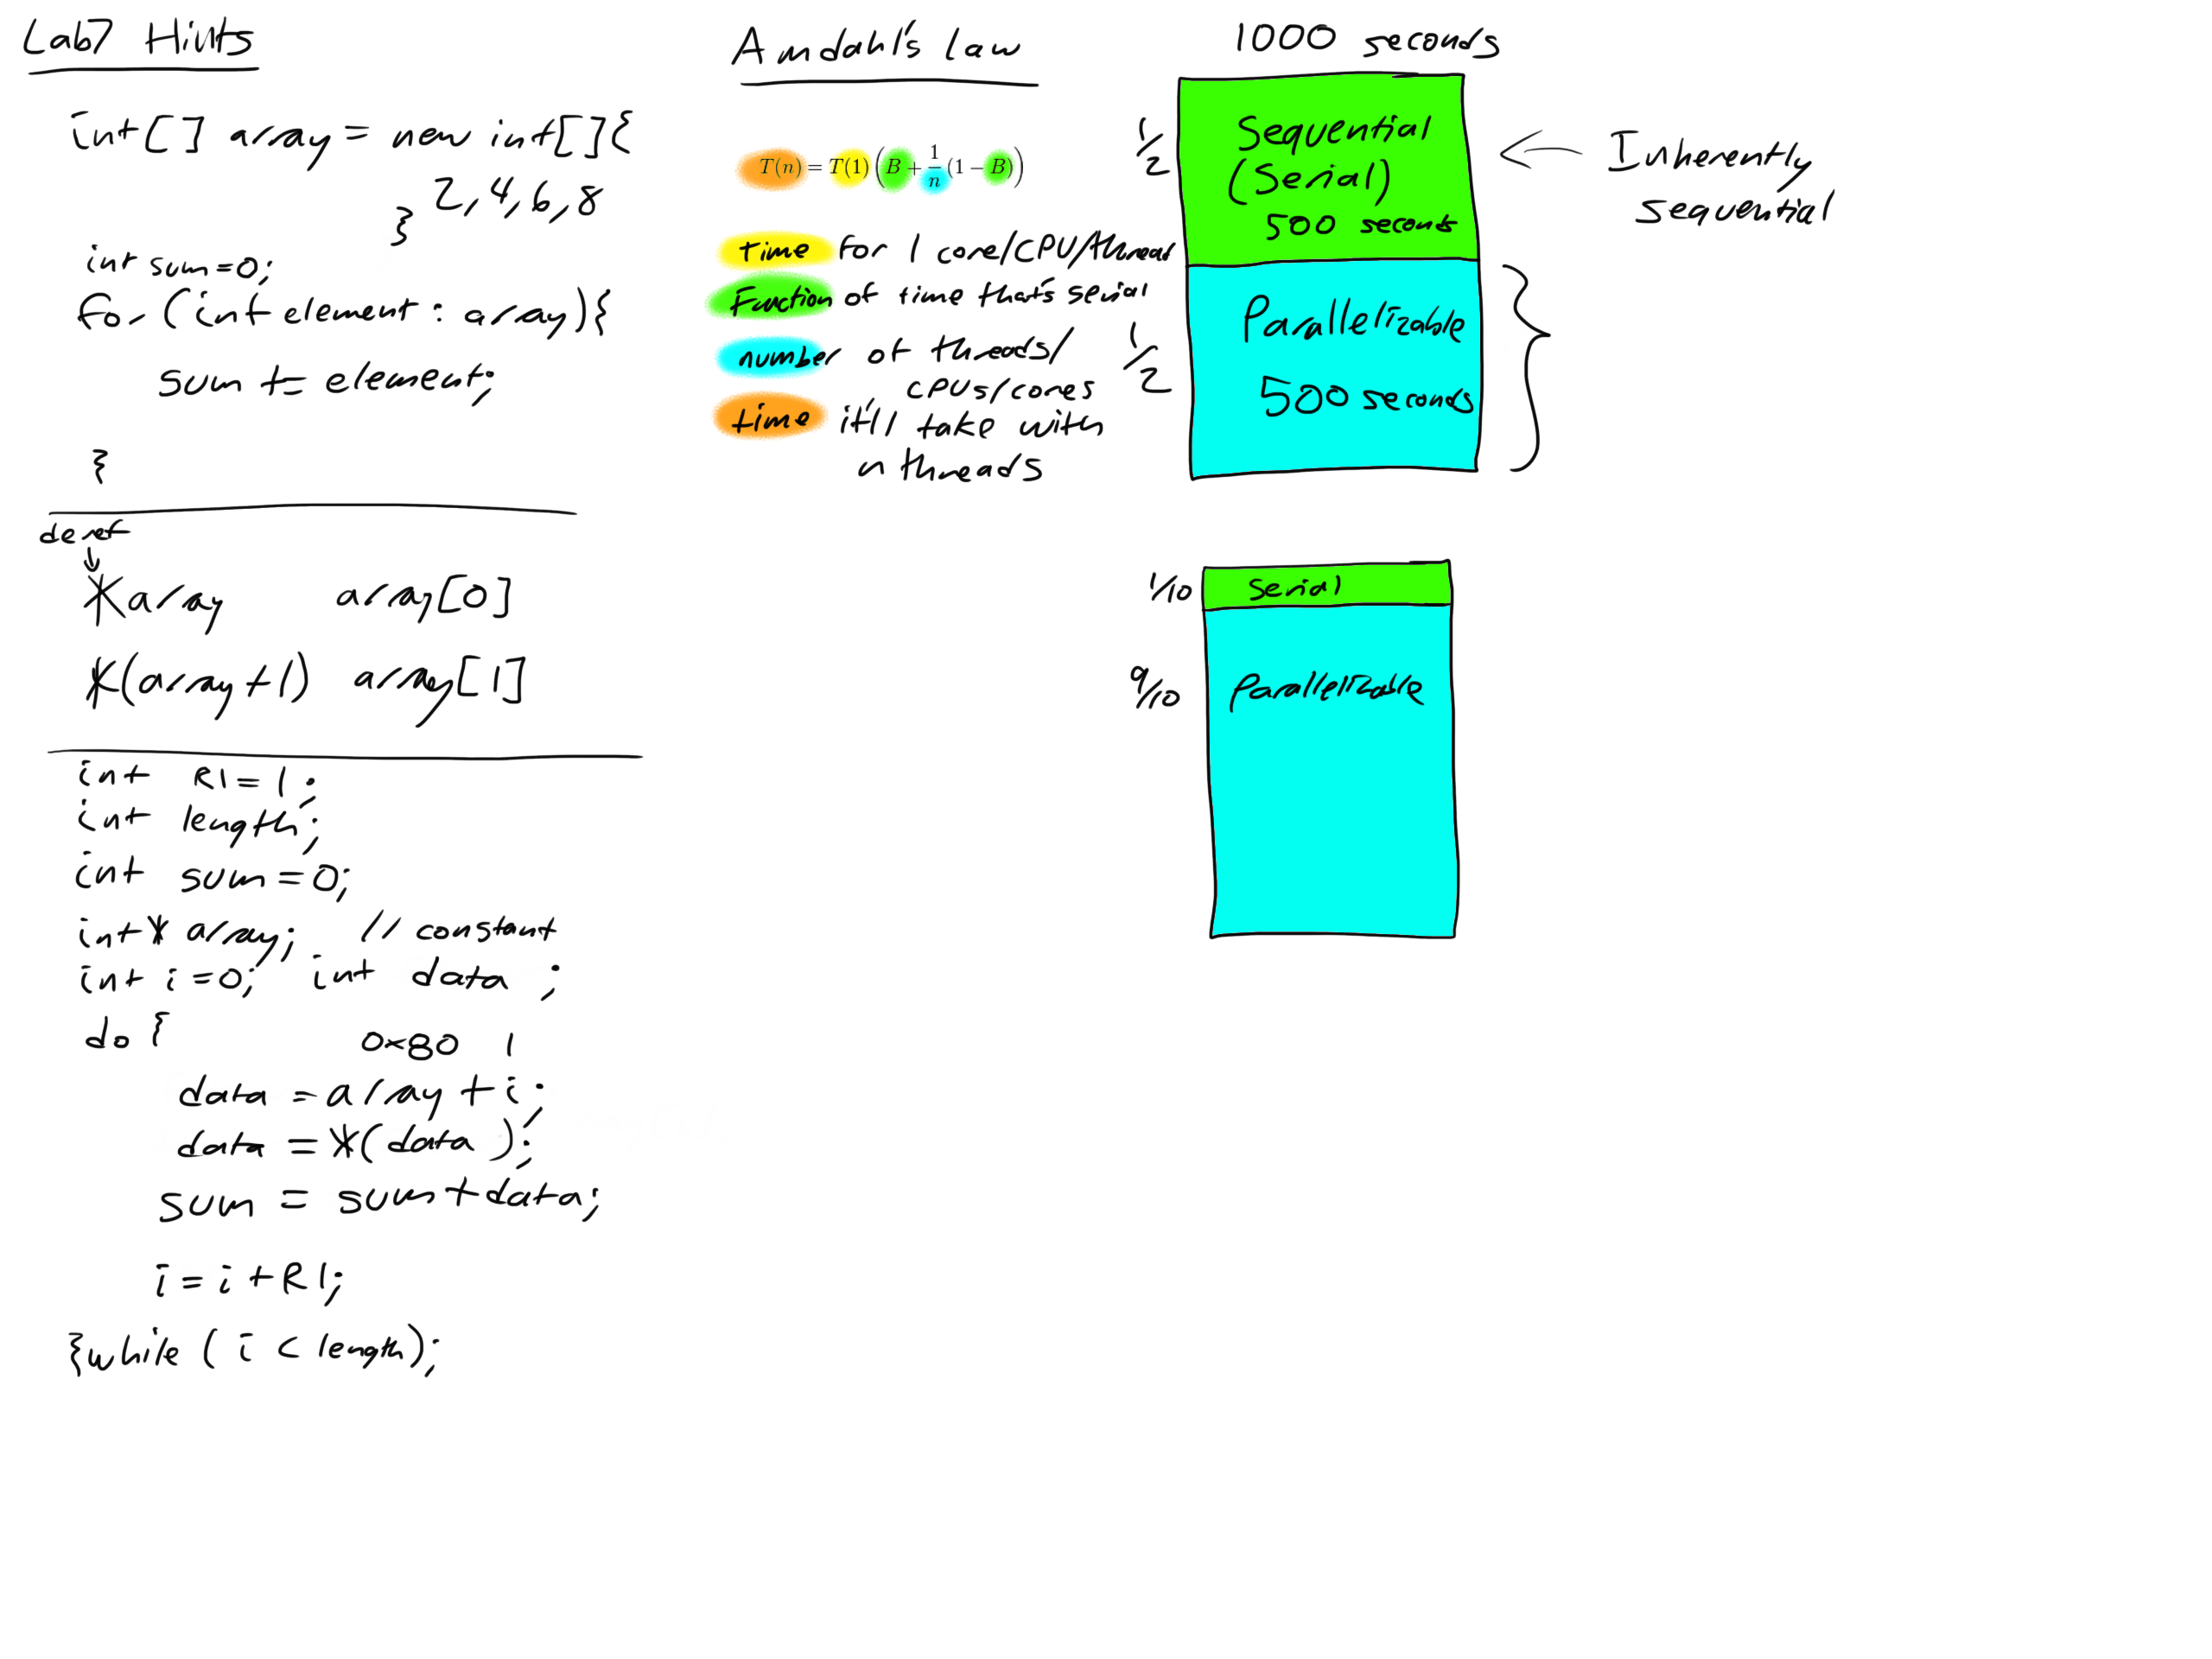 Lab7 Hints
int[] array = new int[]{
2, 4, 6, 8
}
int sum=0;
for (int element : array){
sum += element;
}
deref
*array array[0]
*(array+1) array[1]
int R1 = 1;
int length;
int sum = 0;
int* array; // constant
int i=0; int data ;
do {
0x80 1
data = array + i;
data = *(data );
sum = sum+data;
i = i + R1;
}while ( i < length);
Amdahl's law
T(n) = T(1) (B + 1/n (1 − B))
time for 1 core/CPU/thread
Function of time that's serial
number of threads/
CPUs/cores
time it'll take with
n threads
1000 seconds
1/2
Sequential
(Serial)
500 seconds
Inherently
sequential
1/2
Parallelizable
500 seconds
1/10 serial
9/10 Parallelizable